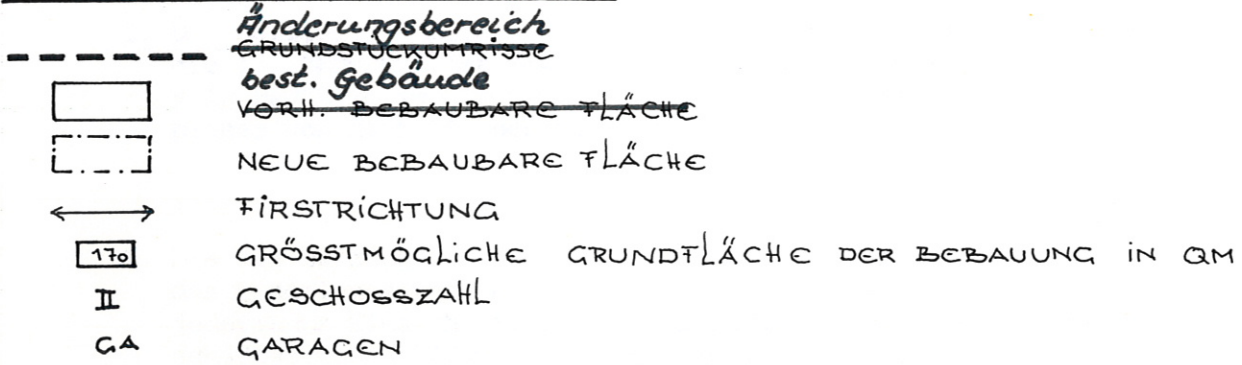 Änderungsbereich
GRUNDSTÜCKUMRISSE
best. Gebäude
VORH. BEBAUBARE FLÄCHE
NEUE BEBAUBARE FLÄCHE
FIRSTRICHTUNG
170 GRÖSSTMÖGLICHE GRUNDFLÄCHE DER BEBAUUNG IN QM
II GESCHOSSZAHL
GA GARAGEN